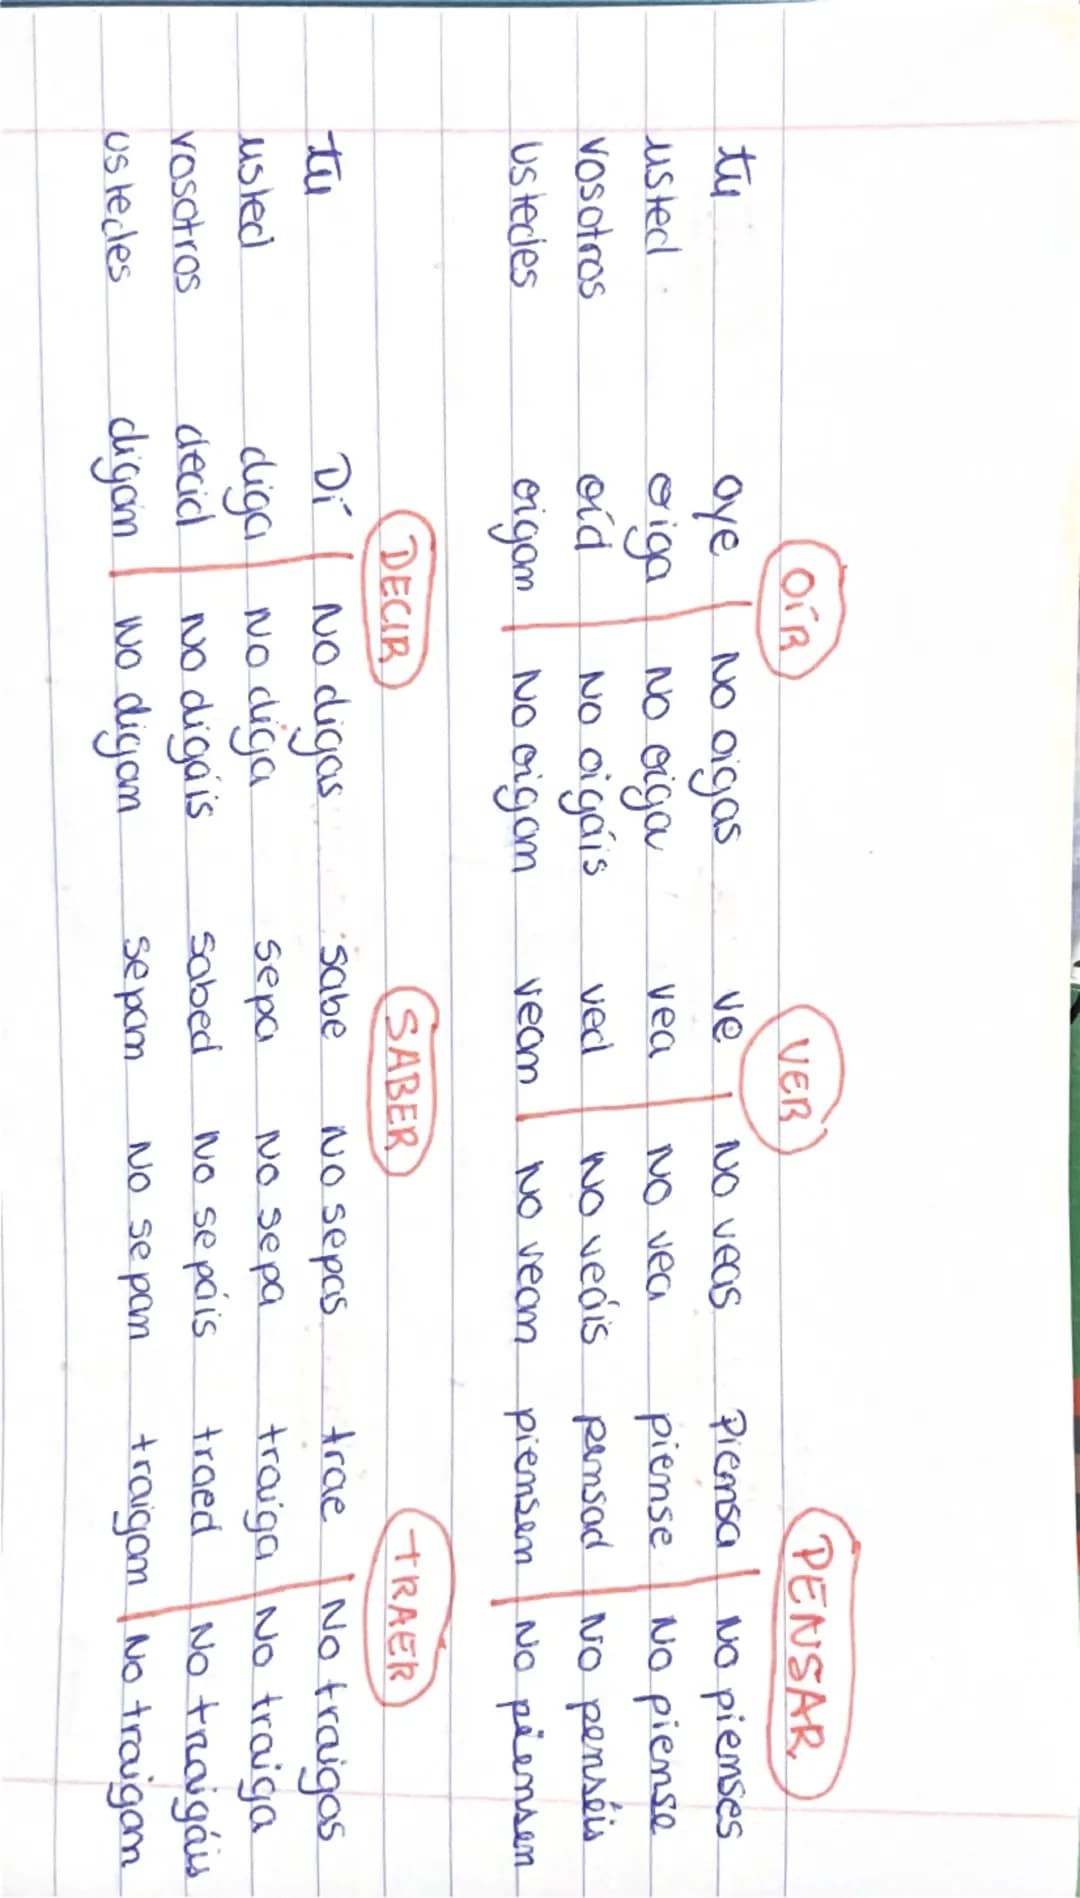 OÍR VER PENSAR
tu oye No oigas ve No veas Piensa No pienses
usted oiga No oiga vea No vea piense No piense
vosotros oíd No oigáis ved No veáis pensad No penséis
ustedes oigan No oigan vean No vean piensen No piensen
DECIR SABER tRAER
tu Dí No digas sabe No sepas trae No traigas
usted diga No diga sepa No sepa traiga No traiga
vosotros decid No digáis sabed No sepáis traed No traigáis
ustedes digan No digan sepan No sepan traigan No traigan